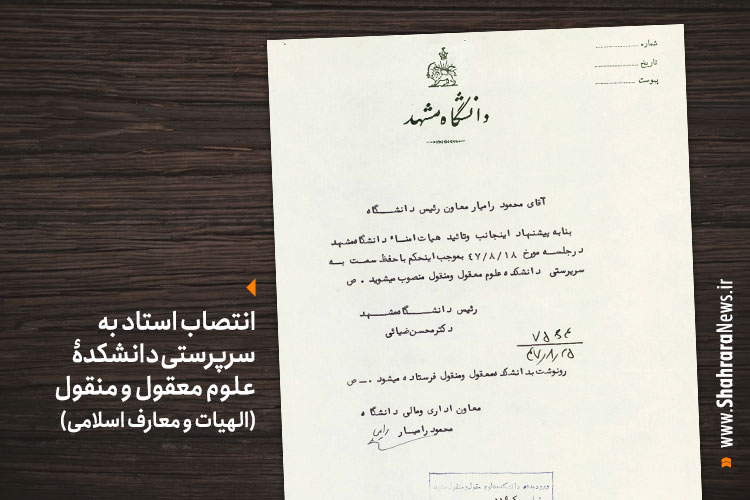 شماره
تاریخ
پیوست
دانشگاه مشهد
آقای محمود رامیار معاون رئیس دانشگاه
بنا به پیشنهاد اینجانب وتائید هیات امناء دانشگاه مشهد
درجلسه مورخ ۴۷/۸/۱۸ بموجب اینحکم با حفظ سمت به
سرپرستی دانشکده علوم معقول ومنقول منصوب میشوید . ص
رئیس دانشگاه مشهد
دکترمحسن ضیائی
۴۷/۸/۲۵
رونوشت بدانشکده معقول ومنقول فرستاده میشود . ــ ص
معاون اداری ومالی دانشگاه
محمود رامیار
ورود به دانشکده علوم معقول و منقول
انتصاب استاد به
سرپرستی دانشکدهٔ
علوم معقول و منقول
(الهیات و معارف اسلامی)
www.ShahraraNews.ir